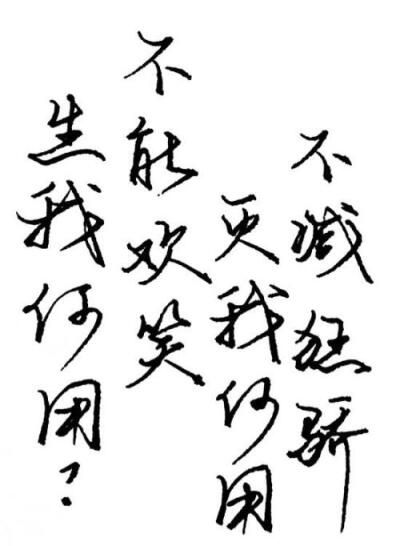 生我何用？
不能欢笑
灭我何用
不减狂骄